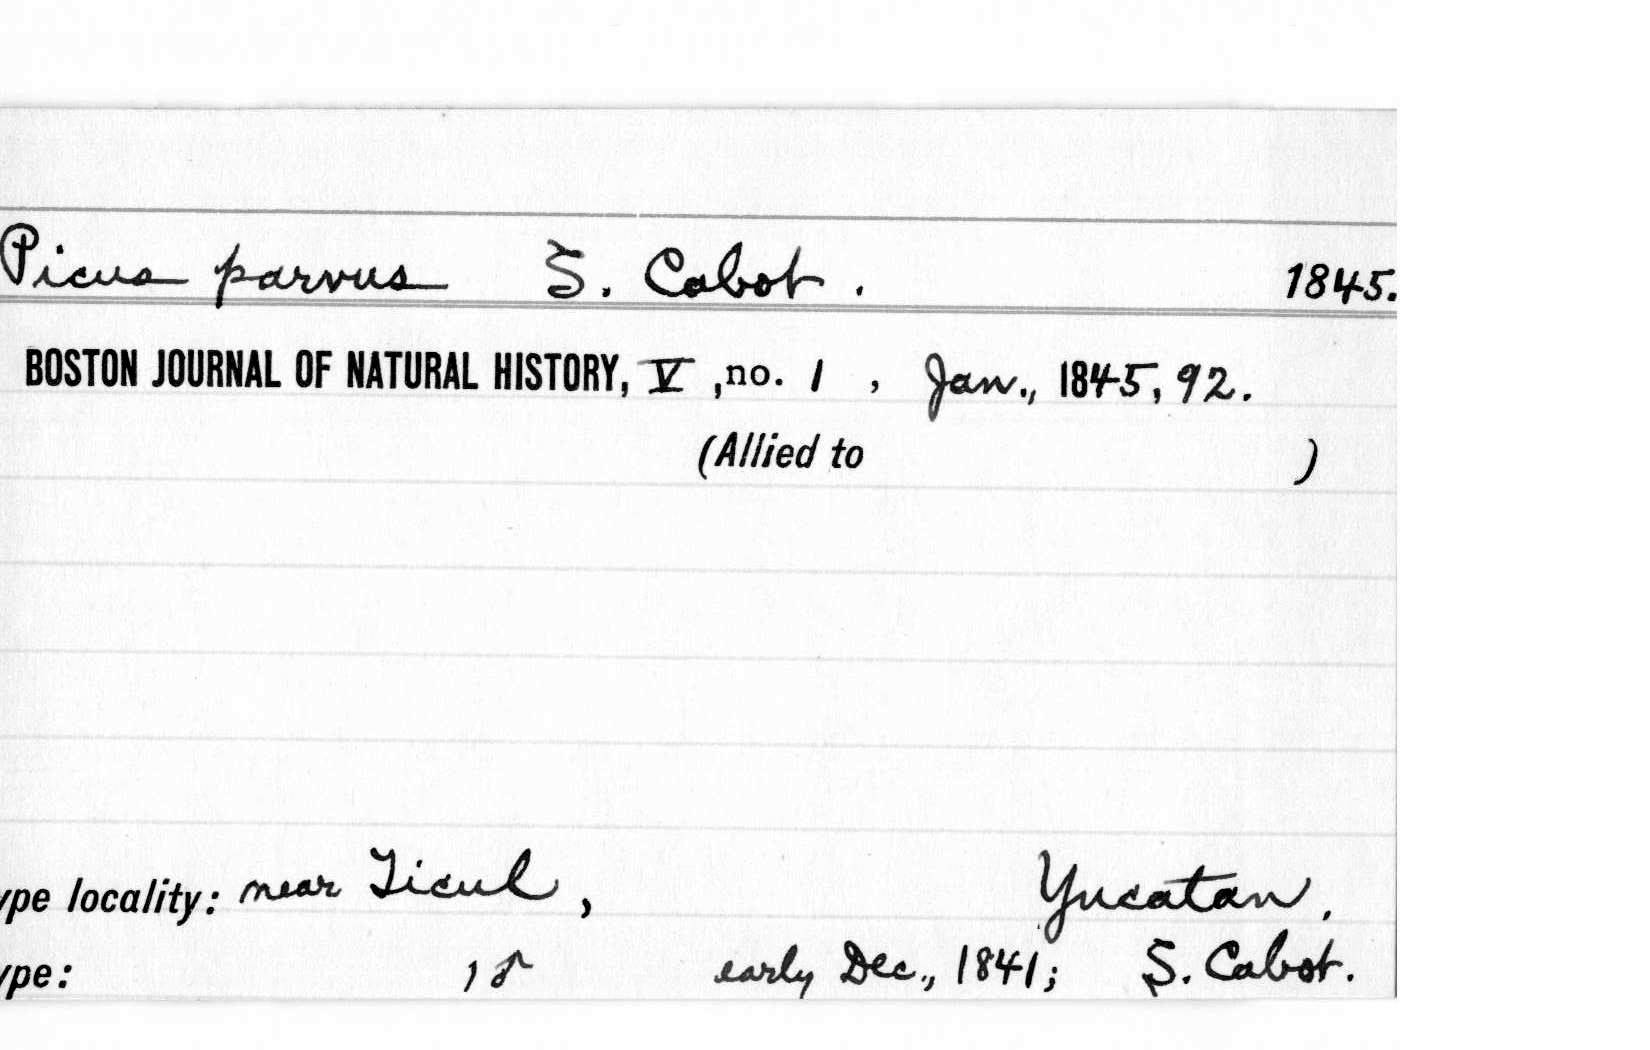 Picus parvus S. Cabot. 1845.
BOSTON JOURNAL OF NATURAL HISTORY, V, no. 1, Jan., 1845, 92.
(Allied to )
ype locality: near Ticul, Yucatan.
ype: 1♂ early Dec., 1841; S. Cabot.